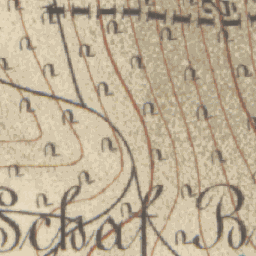 Schaf B